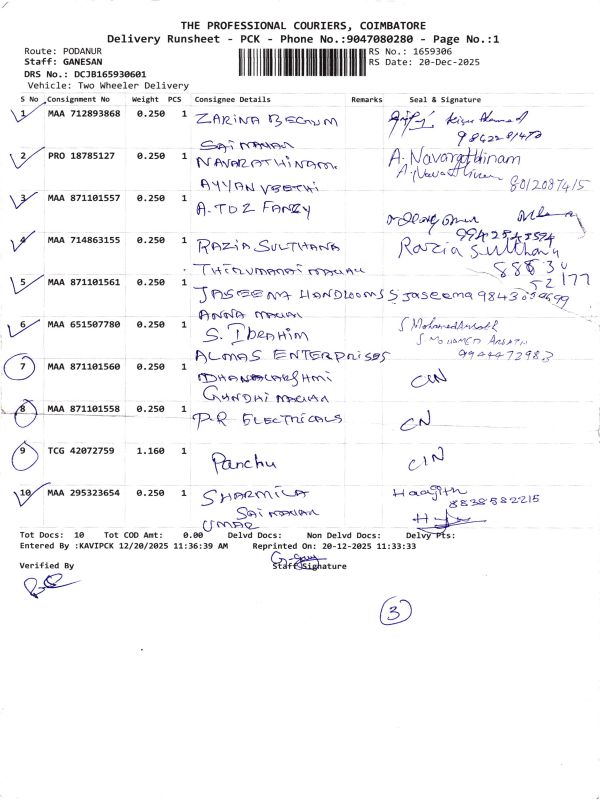 THE PROFESSIONAL COURIERS, COIMBATORE
Delivery Runsheet - PCK - Phone No.:9047080280 - Page No.:1
Route: PODANUR RS No.: 1659306
Staff: GANESAN RS Date: 20-Dec-2025
DRS No.: DCJB165930601
Vehicle: Two Wheeler Delivery
S No Consignment No Weight PCS Consignee Details Remarks Seal & Signature
1 MAA 712893868 0.250 1 ZARINA BEGUM
SAI NAGAR
2 PRO 18785127 0.250 1 NAVARATHINAM A. Navarathinam
AYYAN VEETHI 8012087415
3 MAA 871101557 0.250 1 A. TO Z FANZY
9942543594
4 MAA 714863155 0.250 1 RAZIA SULTHANA Razia Sulthana
THIRUMARAI NAGAR 88830
52177
5 MAA 871101561 0.250 1 JASEENA HANDLOOMS S jaseema
ANNA NAGAR
6 MAA 651507780 0.250 1 S. IBRAHIM
ALMAS ENTERPRISES 9944472983
7 MAA 871101560 0.250 1 DHANALAKSHMI C/N
GANDHI NAGAR
8 MAA 871101558 0.250 1 P.R ELECTRICALS CN
9 TCG 42072759 1.160 1 Panchu C/N
10 MAA 295323654 0.250 1 SHARMILA Haajith
SAI NAGAR 8838582215
UMAR
Tot Docs: 10 Tot COD Amt: 0.00 Delvd Docs: Non Delvd Docs: Delvy Pts:
Entered By :KAVIPCK 12/20/2025 11:36:39 AM Reprinted On: 20-12-2025 11:33:33
Verified By Staff Signature
3